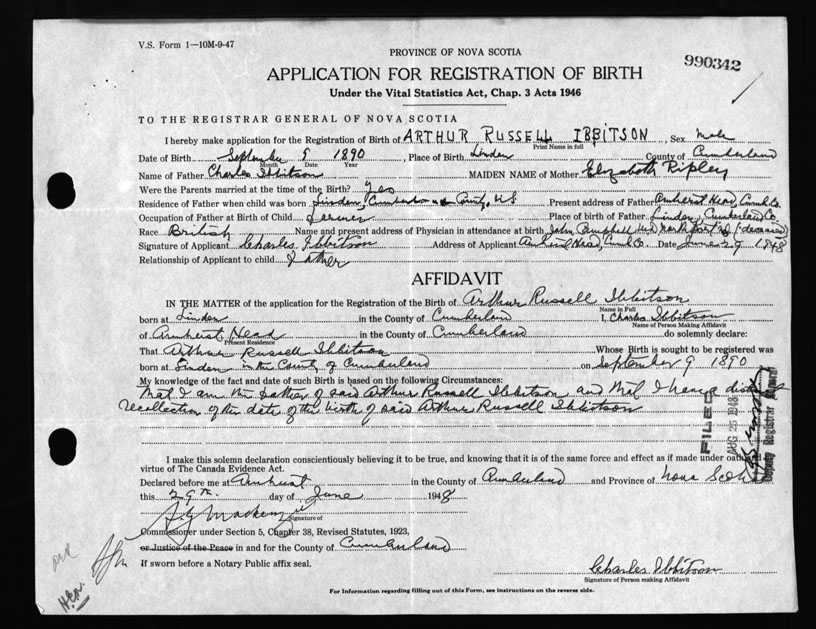 V.S. Form 1—10M-9-47
990342
PROVINCE OF NOVA SCOTIA
APPLICATION FOR REGISTRATION OF BIRTH
Under the Vital Statistics Act, Chap. 3 Acts 1946
TO THE REGISTRAR GENERAL OF NOVA SCOTIA
I hereby make application for the Registration of Birth of ARTHUR RUSSELL IBBITSON Sex Male
Print Name in full
Date of Birth September 9 1890, Place of Birth Linden County of Cumberland
Month Date Year
Name of Father Charles Ibbitson MAIDEN NAME of Mother Elizabeth Ripley
Were the Parents married at the time of the Birth? Yes
Residence of Father when child was born Linden, Cumberland County, N.S. Present address of Father Amherst Head, Cumb. Co.
Occupation of Father at Birth of Child Farmer Place of birth of Father Linden, Cumberland Co.
Race British Name and present address of Physician in attendance at birth John Campbell (deceased)
Signature of Applicant Charles Ibbitson Address of Applicant Amherst Head, Cumb. Co. Date June 29 1948
Relationship of Applicant to child Father
AFFIDAVIT
IN THE MATTER of the application for the Registration of the Birth of Arthur Russell Ibbitson
Name in Full
born at Linden in the County of Cumberland I, Charles Ibbitson
Name of Person Making Affidavit
of Amherst Head in the County of Cumberland do solemnly declare:
Present Residence
That Arthur Russell Ibbitson Whose Birth is sought to be registered was
born at Linden in the County of Cumberland on September 9 1890
My knowledge of the fact and date of such Birth is based on the following Circumstances:
That I am the father of said Arthur Russell Ibbitson and that I have a
recollection of the date of the birth of said Arthur Russell Ibbitson
FILED
AUG 25 1948
Deputy Registrar General
I make this solemn declaration conscientiously believing it to be true, and knowing that it is of the same force and effect as if made under oath and
virtue of The Canada Evidence Act.
Declared before me at Amherst in the County of Cumberland and Province of Nova Scotia
this 29th day of June 1948
Signature of
Commissioner under Section 5, Chapter 38, Revised Statutes, 1923,
or Justice of the Peace in and for the County of Cumberland
If sworn before a Notary Public affix seal.
Charles Ibbitson
Signature of Person making Affidavit
For Information regarding filling out of this Form, see instructions on the reverse side.